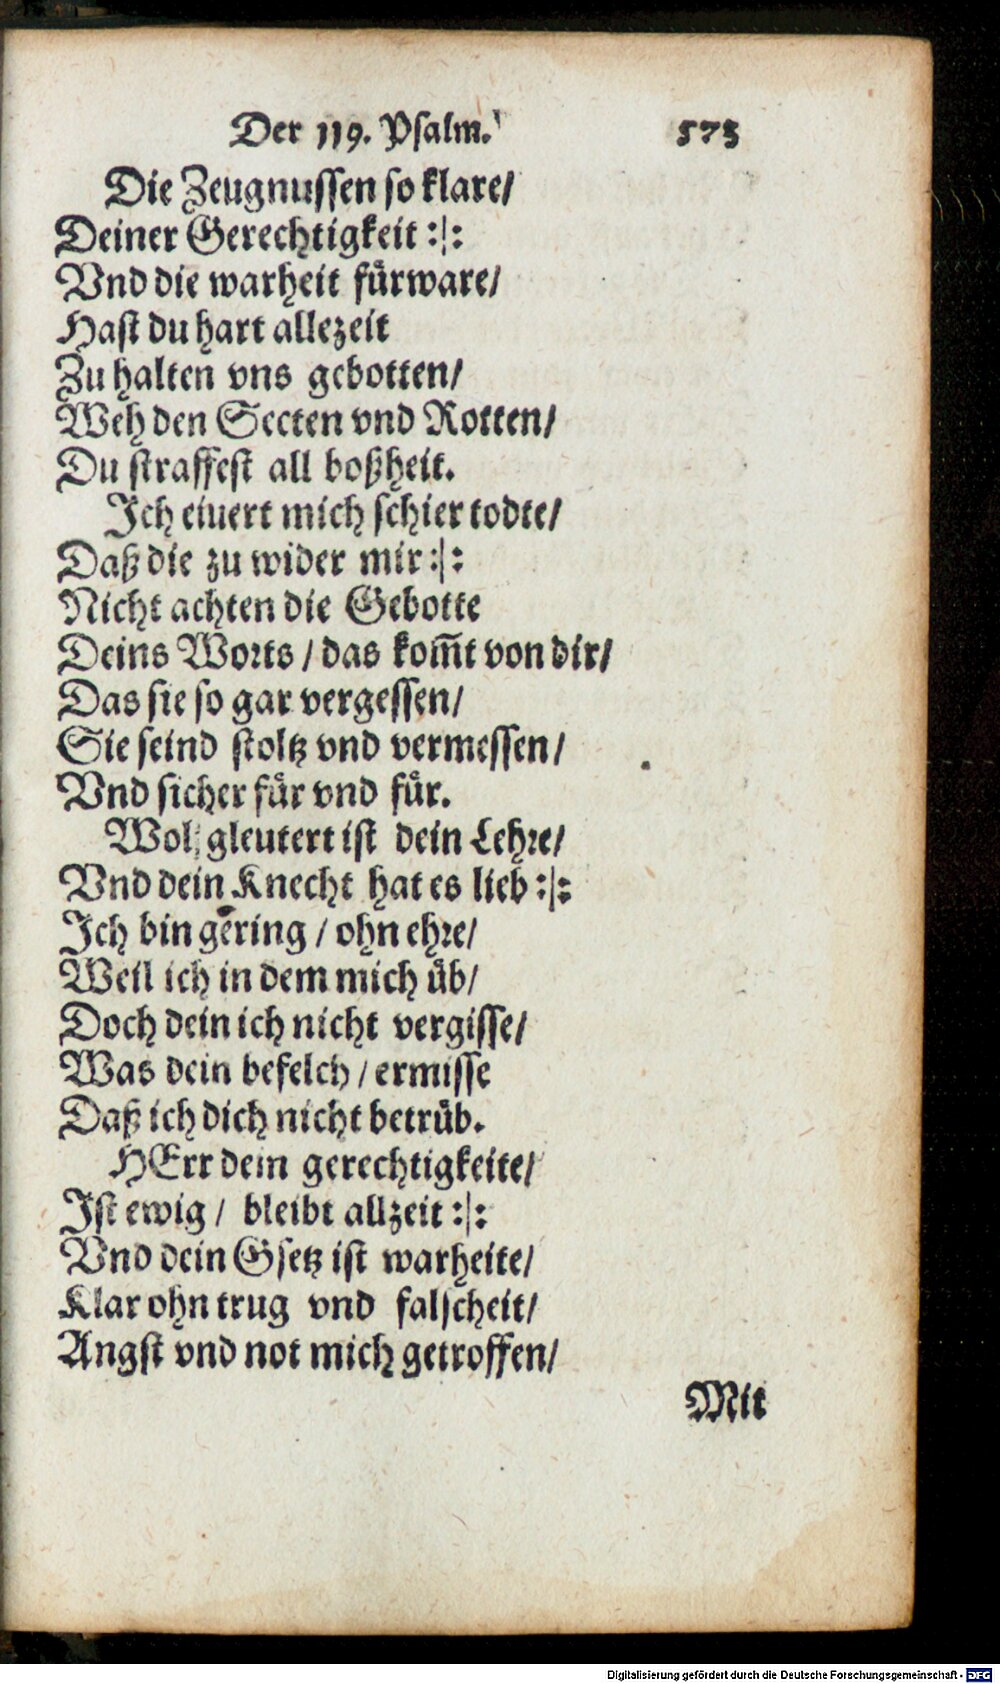 Der 119. Psalm. 573
Die Zeugnussen so klare/
Deiner Gerechtigkeit :|:
Vnd die warheit fuͤrware/
Hast du hart allezeit
Zu halten vns gebotten/
Weh den Secten vnd Rotten/
Du straffest all boßheit.
Ich eiuert mich schier todte/
Daß die zu wider mir :|:
Nicht achten die Gebotte
Deins Worts / das kom̃t von dir/
Das sie so gar vergessen/
Sie seind stoltz vnd vermessen/
Vnd sicher fuͤr vnd fuͤr.
Wol gleutert ist dein Lehre/
Vnd dein Knecht hat es lieb :|:
Ich bin gering / ohn ehre/
Weil ich in dem mich uͤb/
Doch dein ich nicht vergisse/
Was dein befelch / ermisse
Daß ich dich nicht betruͤb.
HErr dein gerechtigkeite/
Ist ewig / bleibt allzeit :|:
Vnd dein Gsetz ist warheite/
Klar ohn trug vnd falscheit/
Angst vnd not mich getroffen/
Mit
Digitalisierung gefördert durch die Deutsche Forschungsgemeinschaft - DFG